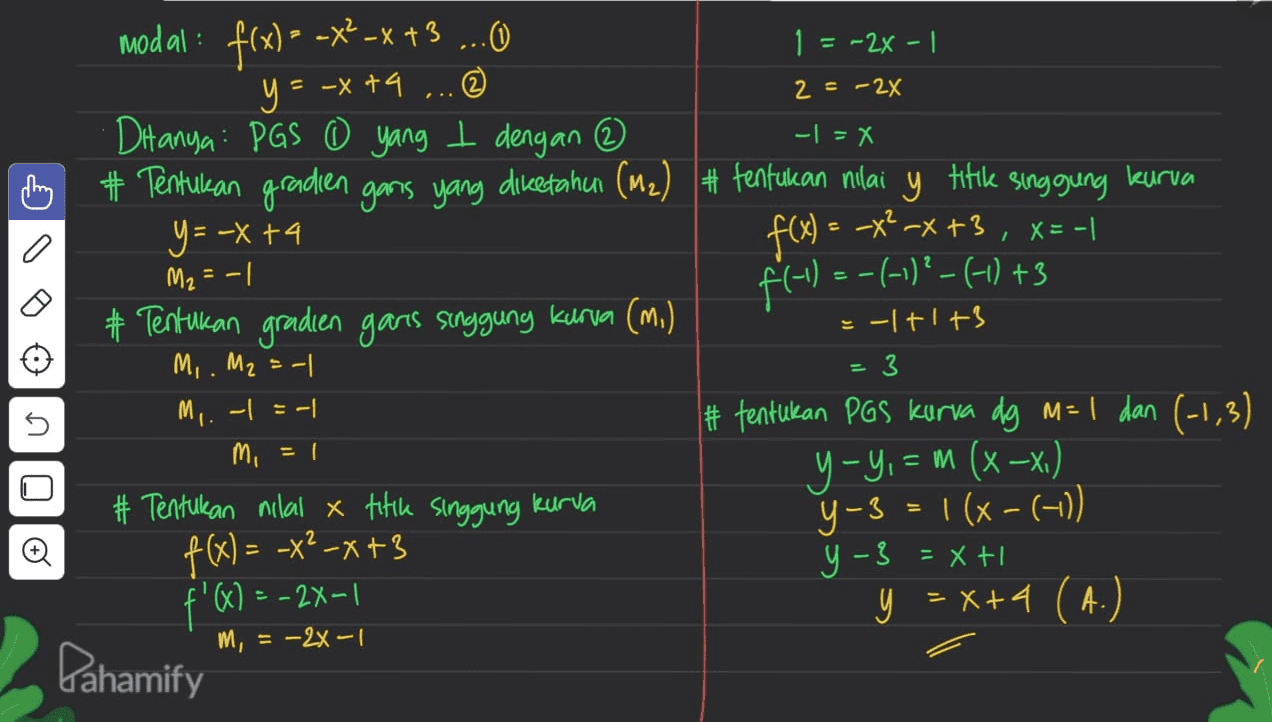 modal : f(x) = -x² -x +3 ...①
y = -x +4 ... ②
Ditanya : PGS ① yang ⊥ dengan ②
# Tentukan gradien garis yang diketahui (M₂)
y = -x +4
M₂ = -1
# Tentukan gradien garis singgung kurva (M₁)
M₁ . M₂ = -1
M₁. -1 = -1
M₁ = 1
# Tentukan nilai x titik singgung kurva
f(x) = -x² -x +3
f'(x) = -2x-1
M₁ = -2x -1
Pahamify
1 = -2x -1
2 = -2x
-1 = x
# tentukan nilai y titik singgung kurva
f(x) = -x² -x +3 , x = -1
f(-1) = -(-1)² - (-1) +3
= -1+1+3
= 3
# tentukan PGS kurva dg M=1 dan (-1,3)
y - y₁ = m (x -x₁)
y -3 = 1 (x - (-1))
y -3 = x +1
y = x+4 (A.)